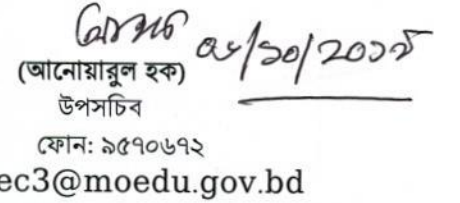 (আনোয়ারুল হক)
উপসচিব
ফোন: ৯৫৭০৬৭২
ec3@moedu.gov.bd